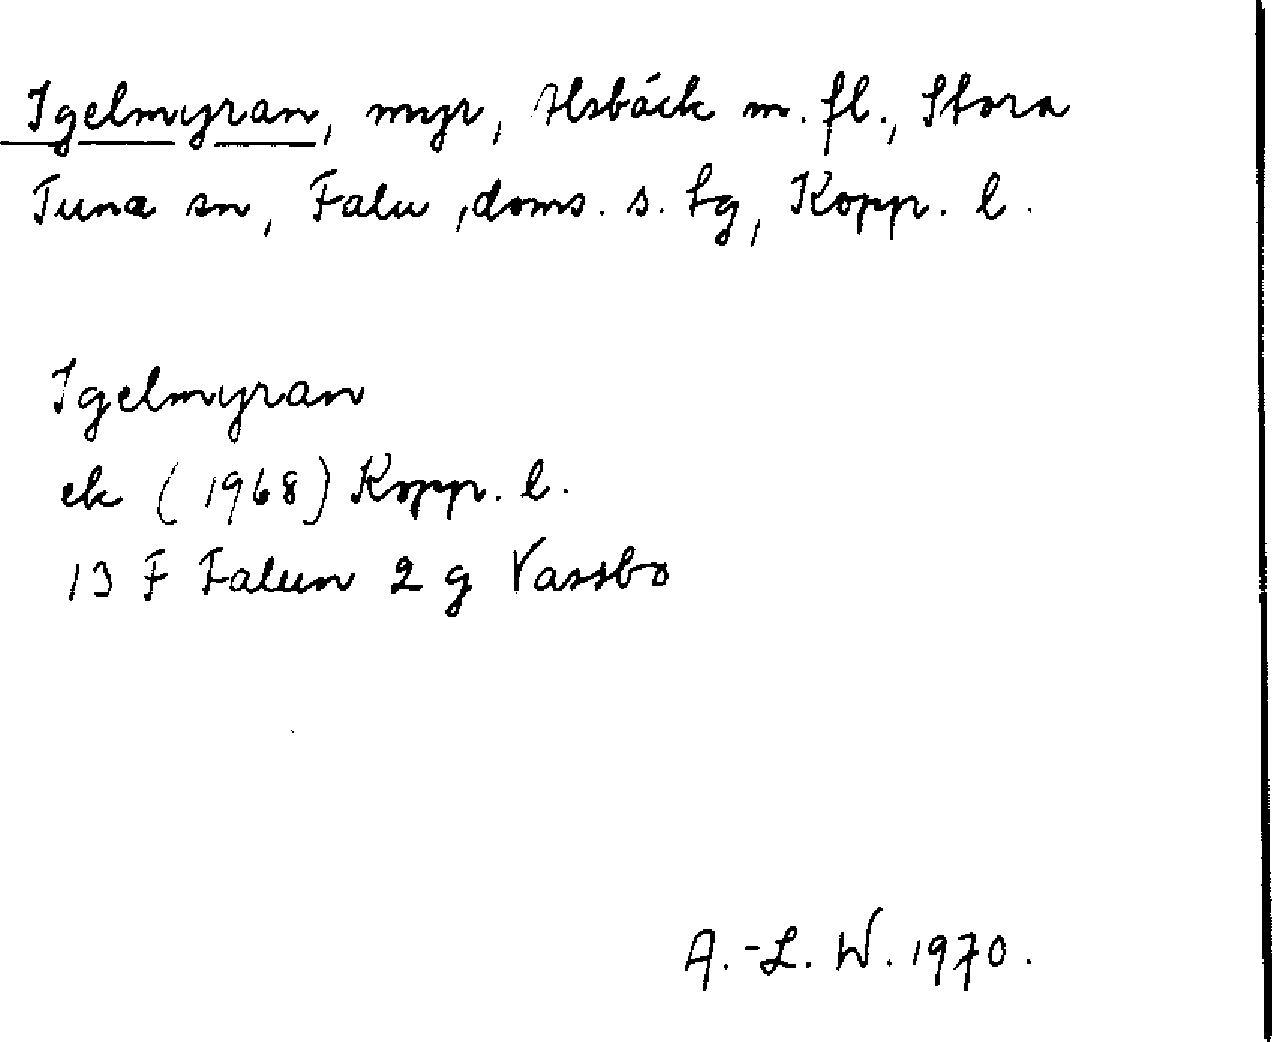 Igelmyran, myr, Alsbäck m. fl., Stora
Tuna sn, Falu, doms. s. tg, Kopp. l.
Igelmyran
ek (1968) Kopp. l.
13 F Falun 2 g Vassbo
A.-L. W. 1970.